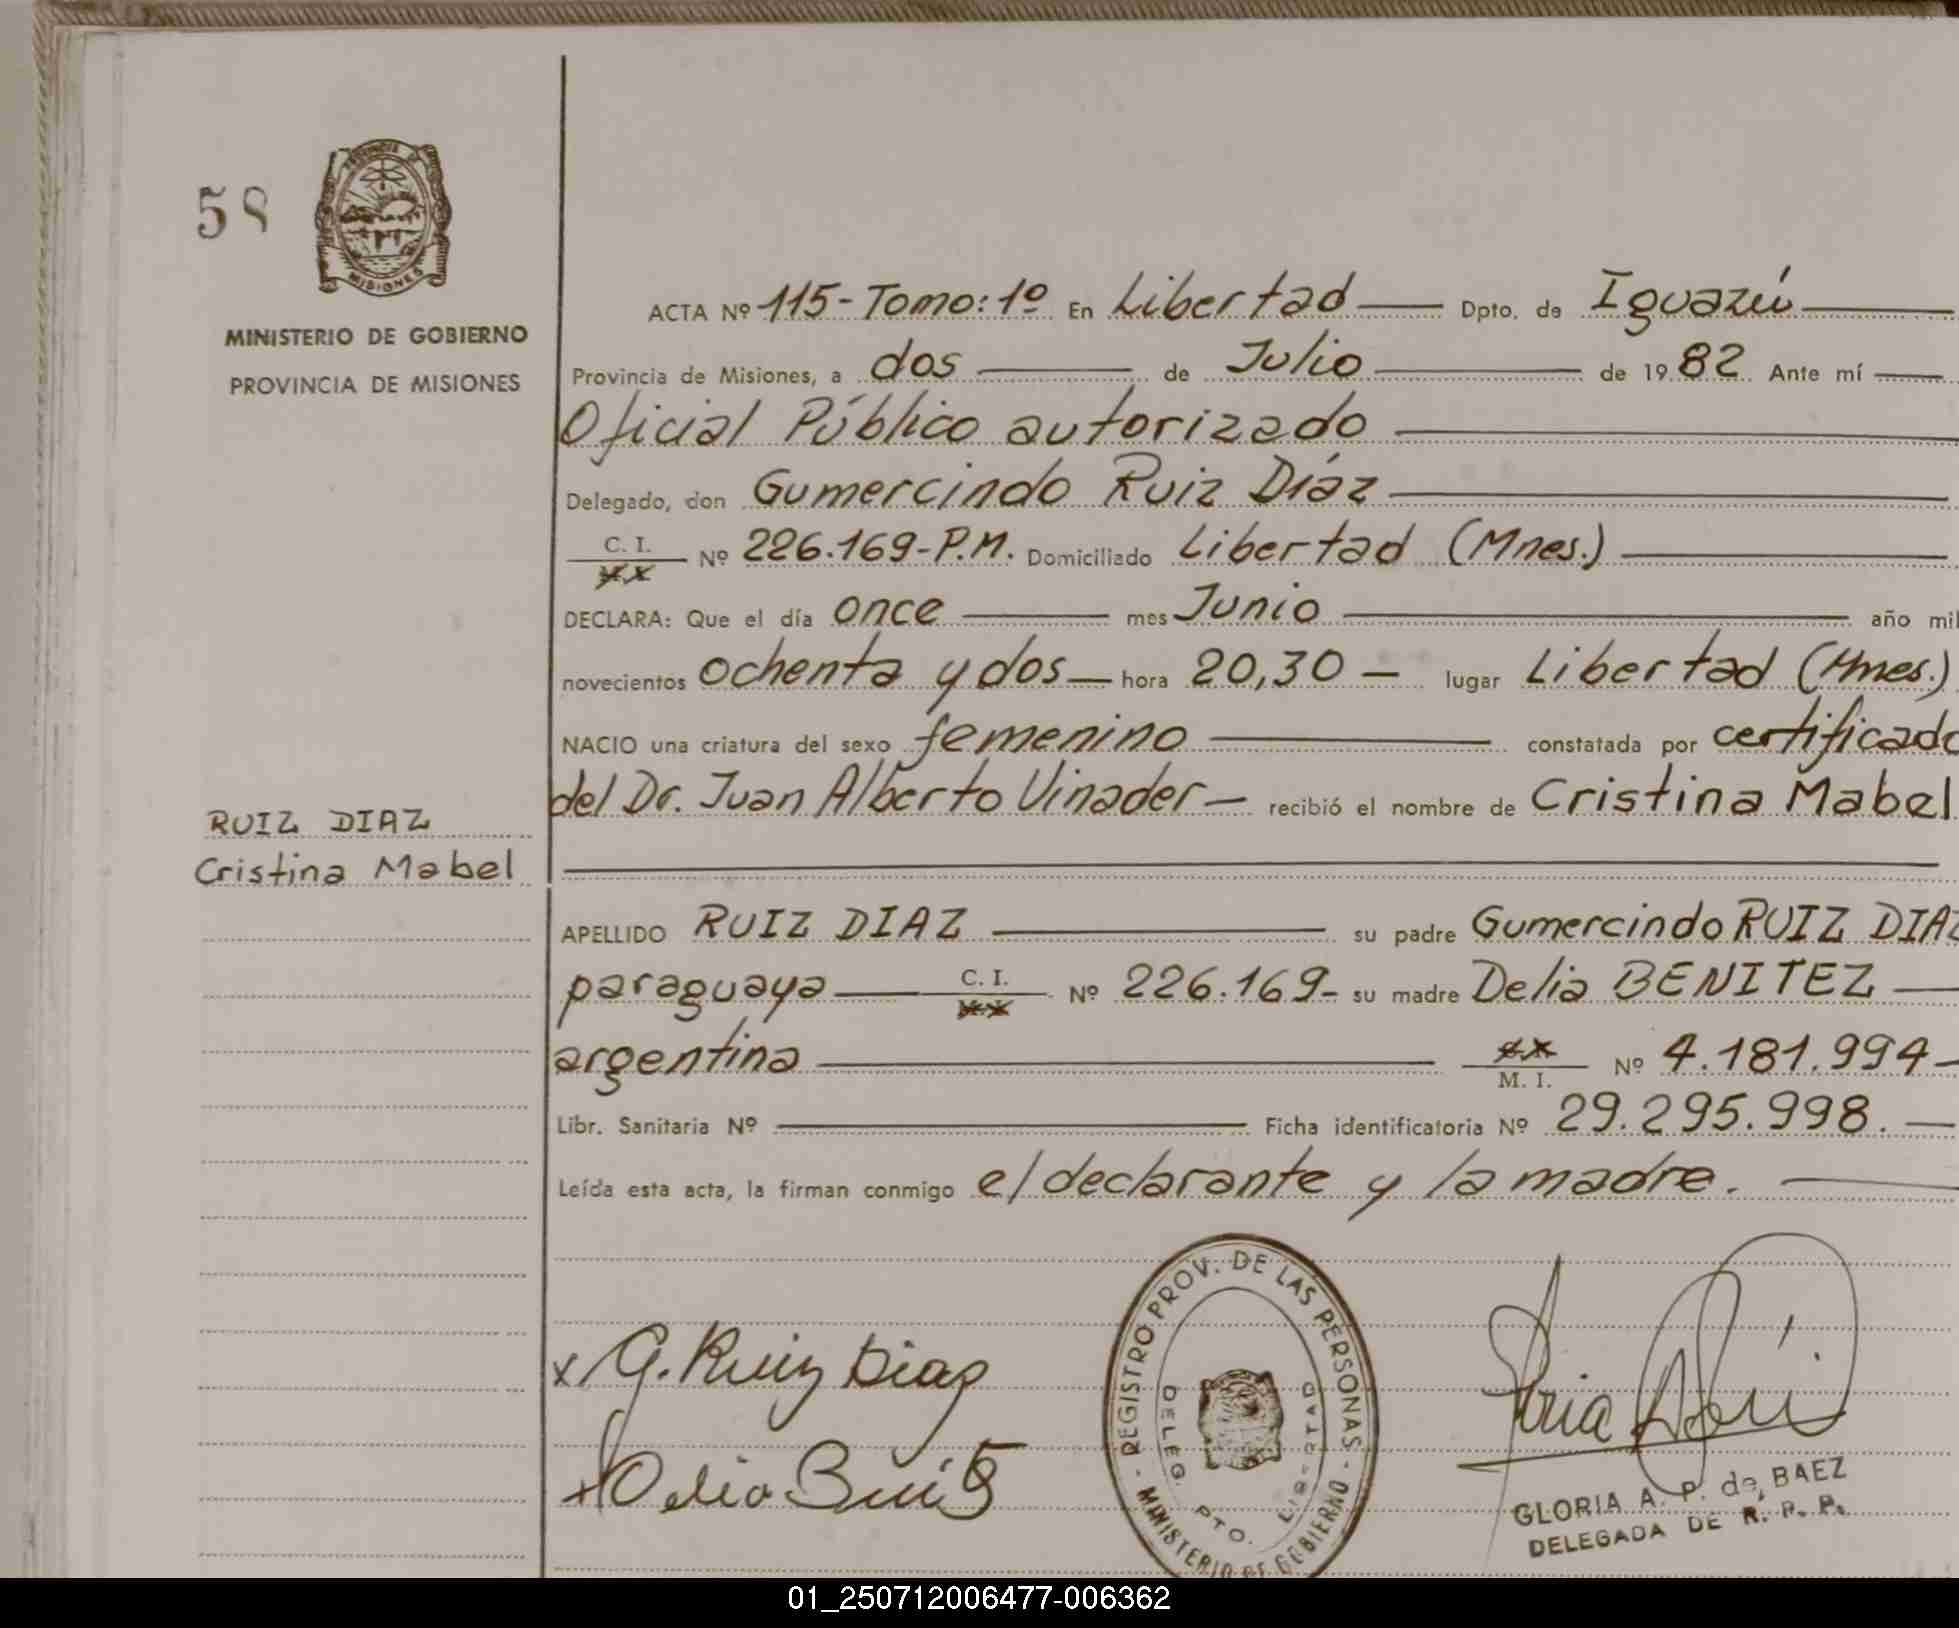 58
PROVINCIA DE
MISIONES
MINISTERIO DE GOBIERNO
PROVINCIA DE MISIONES
ACTA Nº 115- Tomo: 1º En Libertad Dpto. de Iguazú
Provincia de Misiones, a dos de Julio de 1982 Ante mí
Oficial Público autorizado
Delegado, don Gumercindo Ruiz Díaz
C. I. Nº 226.169-P.M. Domiciliado Libertad (Mnes.)
DECLARA: Que el día once mes Junio año mil
novecientos ochenta y dos hora 20,30 lugar Libertad (Mnes.)
NACIO una criatura del sexo femenino constatada por certificado
del Dr. Juan Alberto Vinader recibió el nombre de Cristina Mabel
RUIZ DIAZ
Cristina Mabel
APELLIDO RUIZ DIAZ su padre Gumercindo RUIZ DIAZ
paraguaya C. I. Nº 226.169- su madre Delia BENITEZ
argentina M. I. Nº 4.181.994
Libr. Sanitaria Nº Ficha identificatoria Nº 29.295.998.
Leída esta acta, la firman conmigo el declarante y la madre.
x G. Ruiz Diaz
x Delia
REGISTRO PROV. DE LAS PERSONAS - MINISTERIO DE GOBIERNO -
DELEG. PTO. LIBERTAD
GLORIA A. P. de BAEZ
DELEGADA DE R. P. P.
01_250712006477-006362